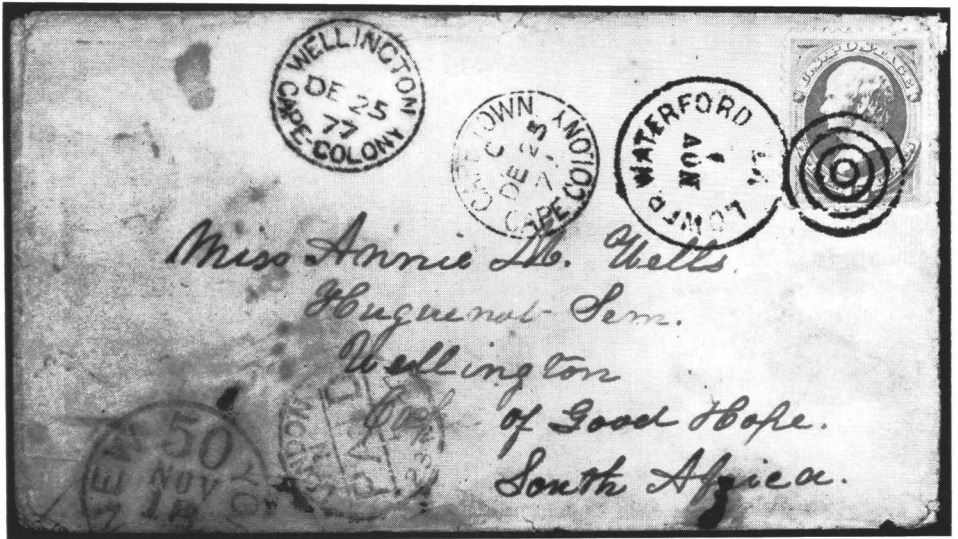 WELLINGTON
DE 25
77
CAPE-COLONY
TOWN
C
DE 25
7
CAPE COLONY
LOWER WATERFORD
NOV
U.S. POSTAGE
Miss Annie M. Wells.
Huguenot Sem.
Wellington
Cape of Good Hope.
South Africa.
NEW YO
50
NOV
LONDON
PAID